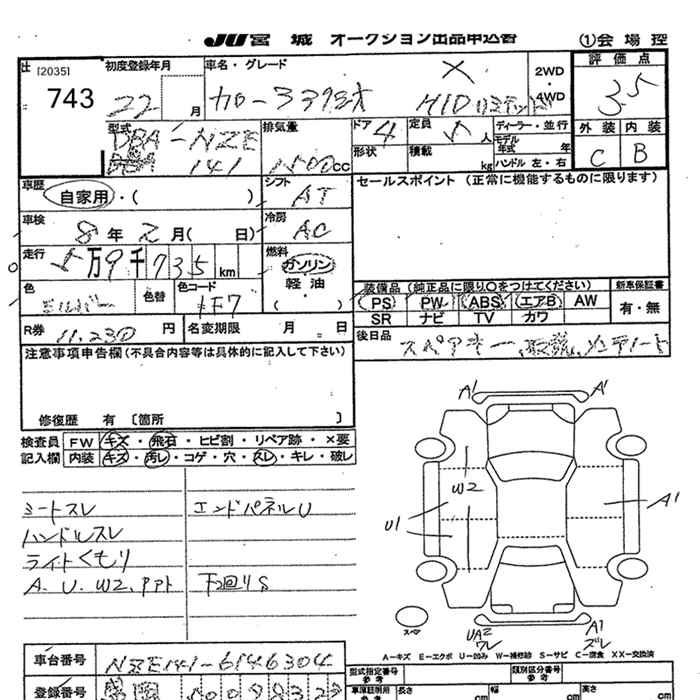 JU 宮城 オークション出品申込書 (1)会場控
出 [2035] 743
初度登録年月 22 月
車名・グレード カローラ アクシオ X HIDリミテッド
2WD・4WD
評価点 3.5
外装 C 内装 B
型式 DBA-NZE141
排気量 1500cc
ドア 4 形状
定員 5 人 積載 kg
ディーラー・並行
モデル年式 年
ハンドル 左・右
車歴 自家用・( )
シフト AT
セールスポイント (正常に機能するものに限ります)
車検 8年2月( 日)
冷房 AC
走行 5万9千735km
燃料 ガソリン 軽油 ( )
色 シルバー 色替 色コード 1F7
装備品 (純正品に限り○をつけてください) 新車保証書
PS PW ABS エアB AW 有・無
SR ナビ TV カワ
R券 11,230円 名変期限 月 日
後日品 スペアキー、取説、メンテノート
注意事項申告欄(不具合内容等は具体的に記入して下さい)
修復歴 有 〔箇所 〕
検査員 FW キズ・飛石・ヒビ割・リペア跡・×要
記入欄 内装 キズ・汚レ・コゲ・穴・スレ・キレ・破レ
シートスレ エンドパネルU
ハンドルスレ
ライトくもり
A.U.W2.アト 下回りS
A1 A1
W2
U1 A1
スペア
UA2 ワレ A1 ズレ
A-キズ E-エクボ U-凹み W-補修跡 S-サビ C-腐食 XX-交換済
車台番号 NZE141-6146304
型式指定番号 参考 類別区分番号 参考
登録番号
車庫証明用 参考 長さ cm 幅 cm 高さ cm